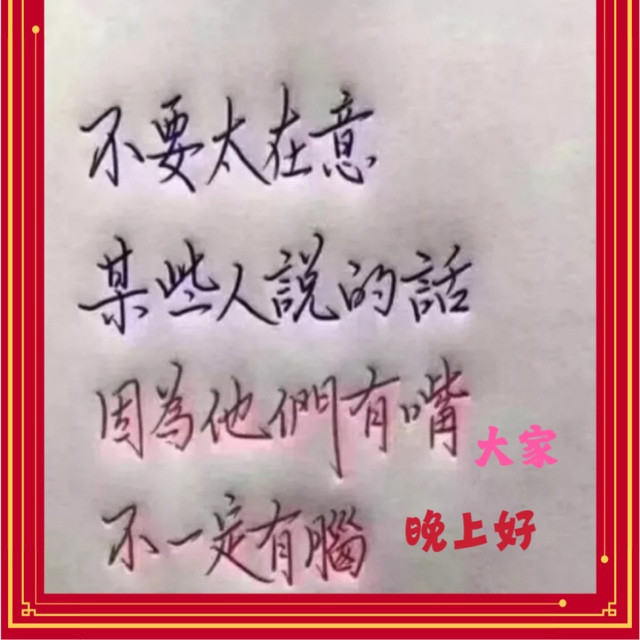 不要太在意
某些人說的話
因為他們有嘴
不一定有腦
大家
晚上好